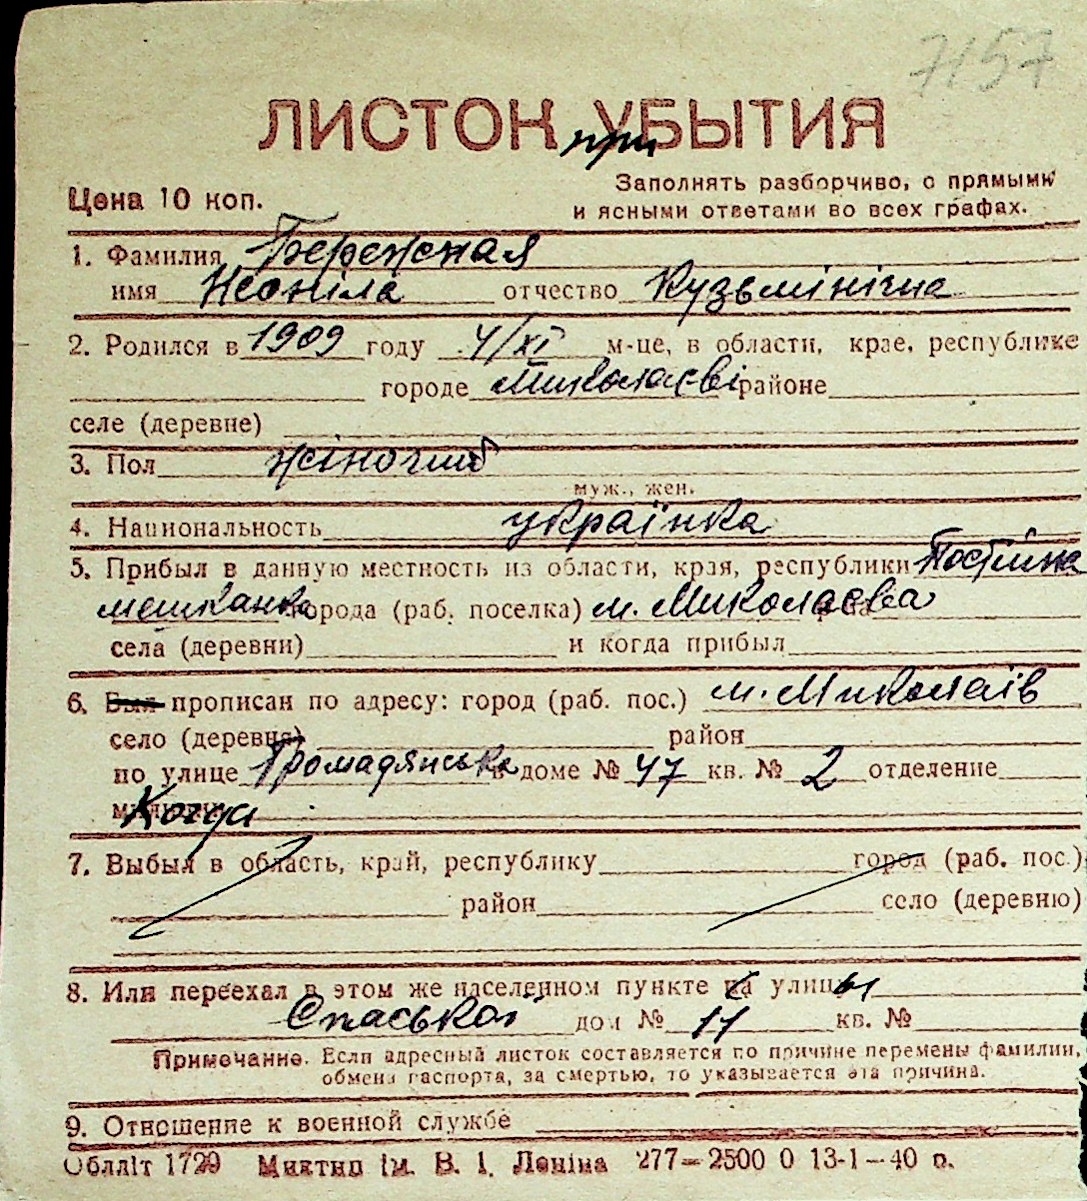 7157
ЛИСТОК УБЫТИЯ
при
Цена 10 коп.
Заполнять разборчиво, с прямыми
и ясными ответами во всех графах.
1. Фамилия Бережная
имя Неоніла отчество Кузьмінічна
2. Родился в 1909 году 4/XI м-це, в области, крае, республике
городе Миколаєві районе
селе (деревне)
3. Пол жіночий
муж., жен.
4. Национальность українка
5. Прибыл в данную местность из области, края, республики Постійна
мешканка города (раб. поселка) м. Миколаєва
села (деревни) и когда прибыл
6. Был прописан по адресу: город (раб. пос.) м. Миколаїв
село (деревня) район
по улице Громадянська в доме № 47 кв. № 2 отделение
Когда
7. Выбыл в область, край, республику город (раб. пос.)
район село (деревню)
8. Или переехал в этом же населенном пункте с улицы
Спаської дом № 11 кв. №
Примечание. Если адресный листок составляется по причине перемены фамилии,
обмена паспорта, за смертью, то указывается эта причина.
9. Отношение к военной службе
Обліт 1729 Миктип ім. В. І. Леніна 277—2500 0 13-1—40 р.